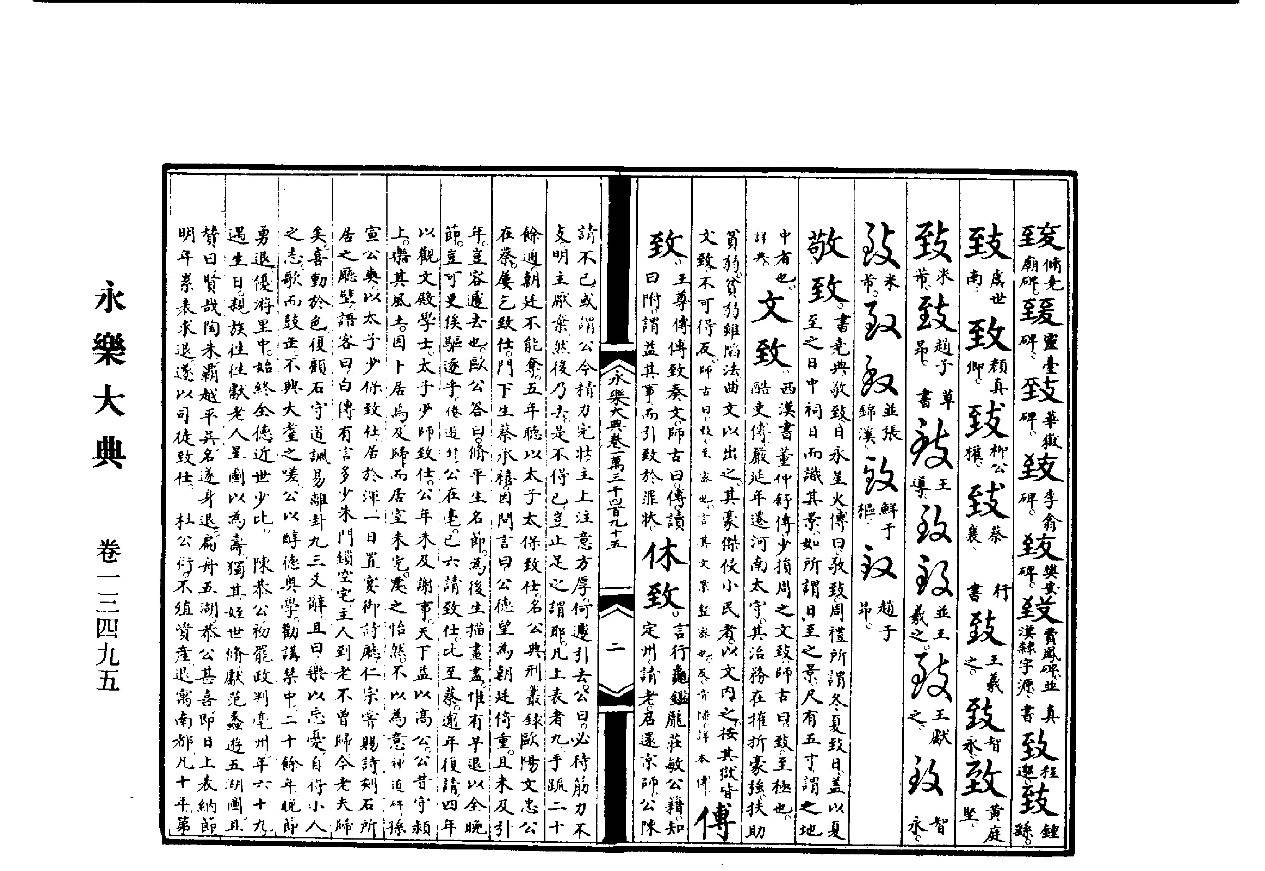 致脩堯廟碑致靈臺碑致華嶽碑致李翕碑致樊安碑致費鳳碑並漢隸字源真書致程邈致鍾繇
致虞世南致顏真卿致柳公權致蔡襄行書致王羲之致智永致黃庭堅
致米芾致趙子昂草書致王導致致並王羲之致王獻之致智永
致米芾致致並張錦溪致鮮于樞致趙子昂
敬致書堯典敬致日永星火傳曰敬致周禮所謂冬夏致日蓋以夏
至之日中祠日而識其景如所謂日至之景尺有五寸謂之地
中者也文致西漢書董仲舒傳少損周之文致師古曰致至極也
酷吏傳嚴延年遷河南太守其治務在摧折豪強扶助
貧弱貧弱雖陷法曲文以出之其豪傑侵小民者以文內之按其獄皆
文致不可得反師古曰致至密也言其文案整密也
傳致王尊傳傳致奏文師古曰傳讀
曰附謂益其事而引致於罪狀休致言行龜鑑龐莊敏公籍知
定州請老召還京師公陳
請不已或謂公今精力完壯主上注意方厚何遽引去公曰必待筋力不
支明主厭棄然後乃去是不得已豈止足之謂耶凡上表者九手疏二十
餘通朝廷不能奪五年聽以太子太保致仕名公典刑叢錄歐陽文忠公
在蔡屢乞致仕門下生蔡承禧因問言曰公德望為朝廷倚重且未及引
年豈容遽去也歐公答曰脩平生名節為後生描畫盡惟有早退以全晚
節豈可更俟驅逐乎倦遊公在亳已六請致仕比至蔡逾年復請四年
以觀文殿學士太子少師致仕公年未及謝事天下益以高公公昔守潁
上樂其風土因卜居焉及歸而居室未完處之怡然不以為意神道碑孫
宣公奭以太子少傅致仕居於渾一日置宴御詩廳仁宗嘗賜詩刻石所
居之廳壁語客曰白傅有言多少朱門鎖空宅主人到老不曾歸今老夫歸
矣喜動於色復顧石守道諷易離卦九三爻辭且曰樂以忘憂自得小人
之志歌而鼓缶不興大耋之嗟公以醇德奧學勸講禁中二十餘年晚節
勇退優游里中始終全德近世少比陳恭公初罷政判亳州年六十九
遇生日親族往往獻老人星圖以為壽獨其姪世脩獻范蠡遊五湖圖且
贊曰賢哉陶朱霸越平吳名遂身退扁舟五湖恭公甚喜即日上表納節
明年累表求退遂以司徒致仕杜公衍不殖資產退寓南都凡十年第
永樂大典卷一萬三千四百九十五
二
永樂大典
卷一三四九五